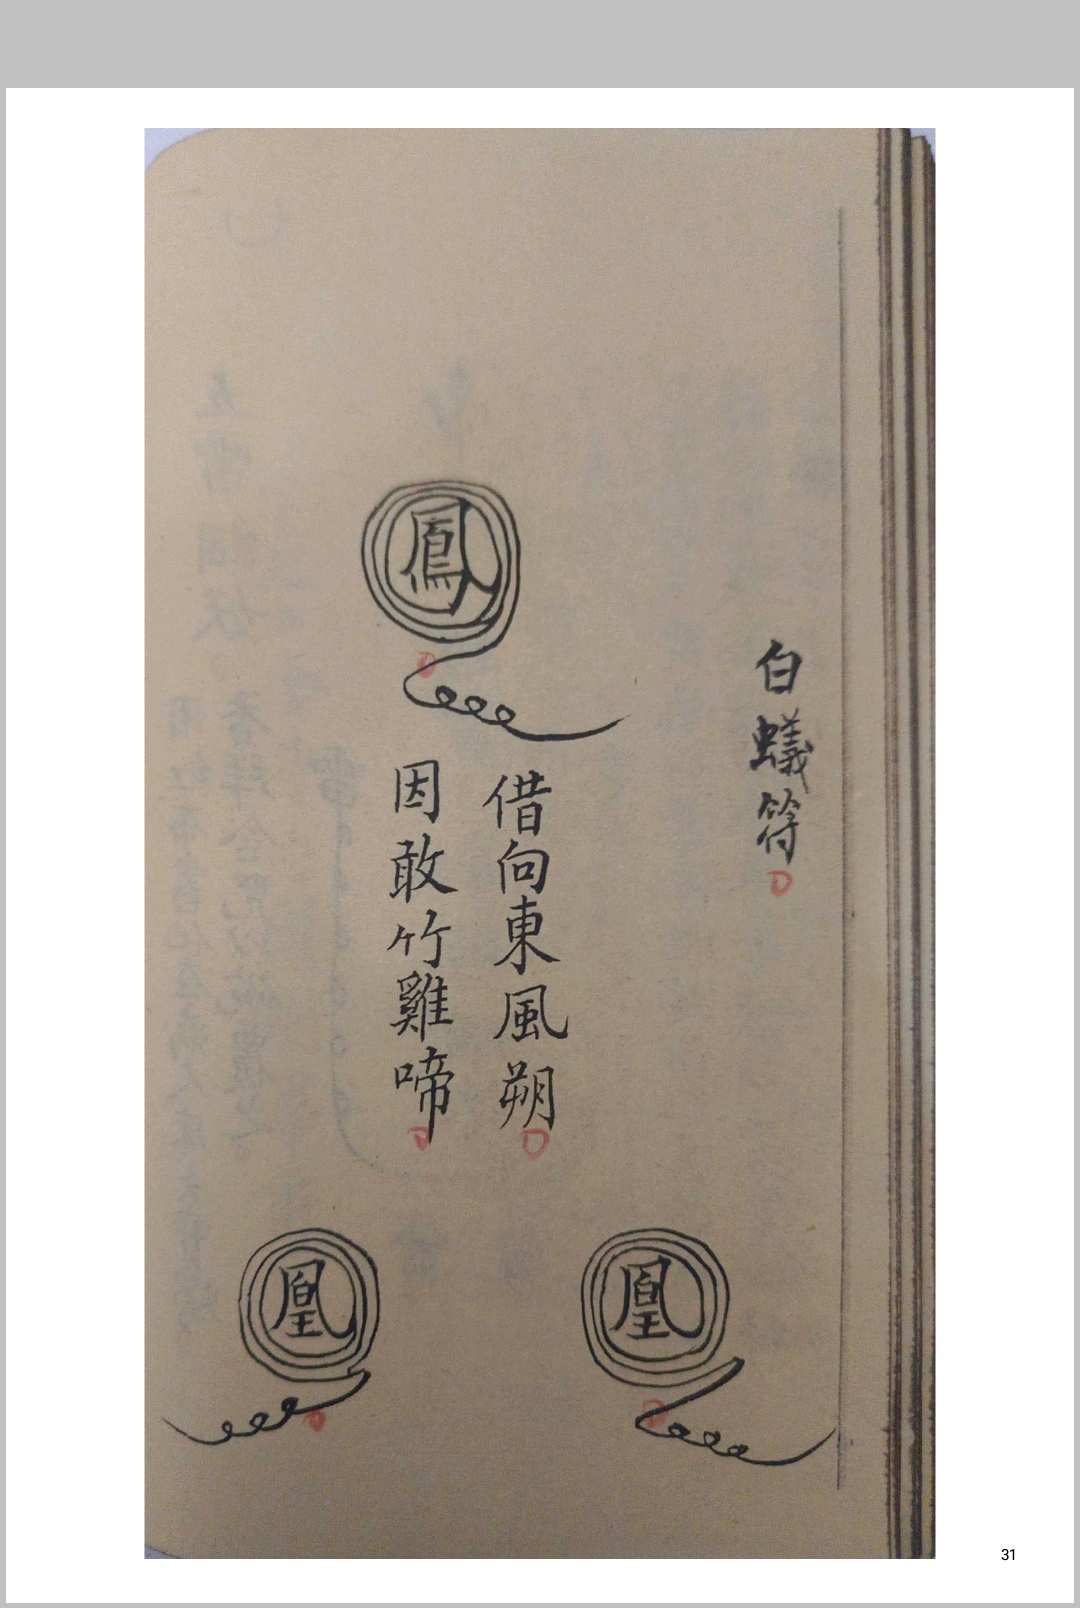 白蟻符
鳳
借向東風朔
因敢竹雞啼
凰
凰
31